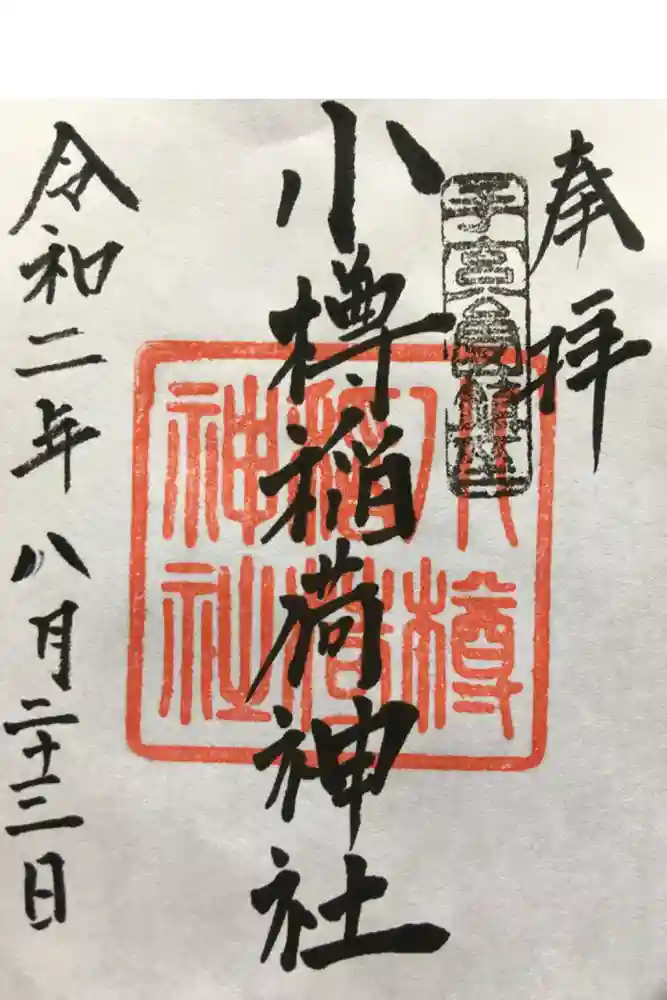 奉拝
小樽稲荷神社
小樽
稲荷
神社
令和二年八月二十三日